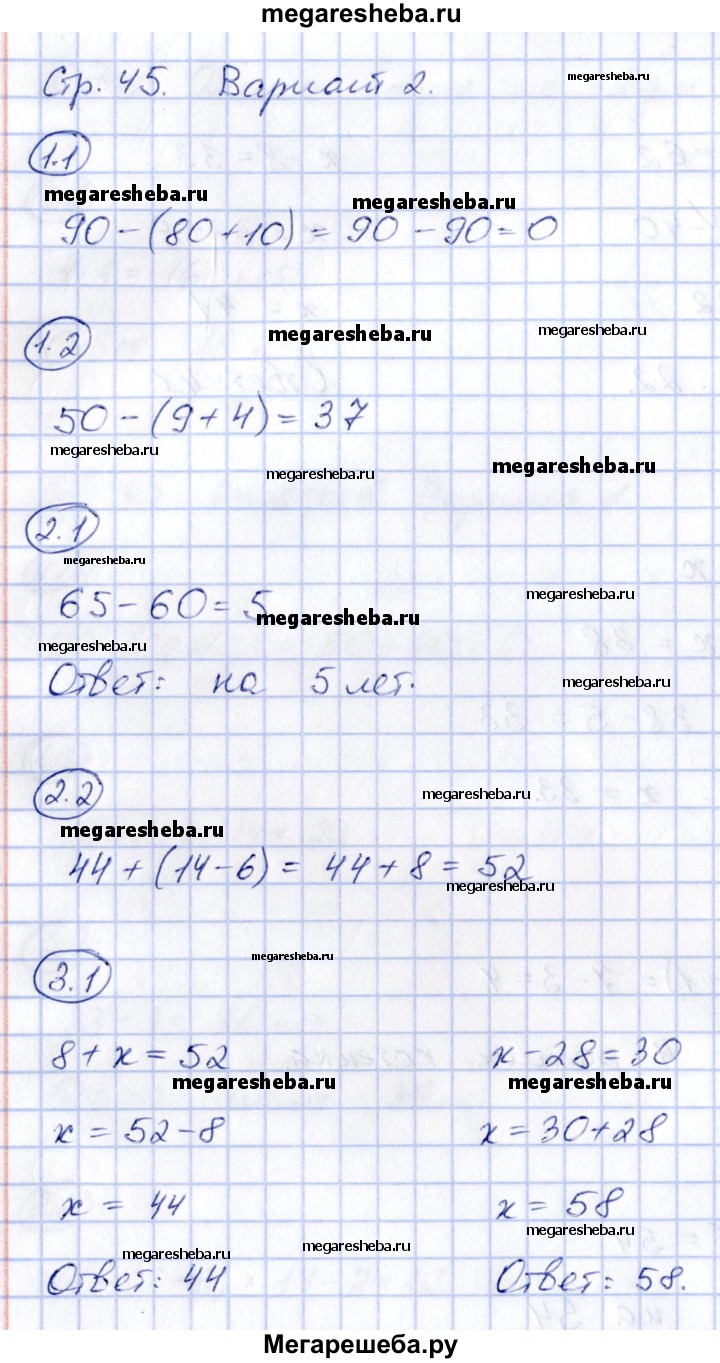 megaresheba.ru
Стр. 45. Вариант 2.
megaresheba.ru
1.1
megaresheba.ru
megaresheba.ru
90 - (80 + 10) = 90 - 90 = 0
1.2
megaresheba.ru
megaresheba.ru
50 - (9 + 4) = 37
megaresheba.ru
megaresheba.ru
megaresheba.ru
2.1
megaresheba.ru
65 - 60 = 5
megaresheba.ru
megaresheba.ru
megaresheba.ru
Ответ: на 5 лет.
megaresheba.ru
2.2
megaresheba.ru
megaresheba.ru
44 + (14 - 6) = 44 + 8 = 52
megaresheba.ru
3.1
megaresheba.ru
8 + x = 52
x - 28 = 30
megaresheba.ru
megaresheba.ru
x = 52 - 8
x = 30 + 28
x = 44
x = 58
megaresheba.ru
megaresheba.ru
megaresheba.ru
Ответ: 44
Ответ: 58.
Мегарешеба.ру